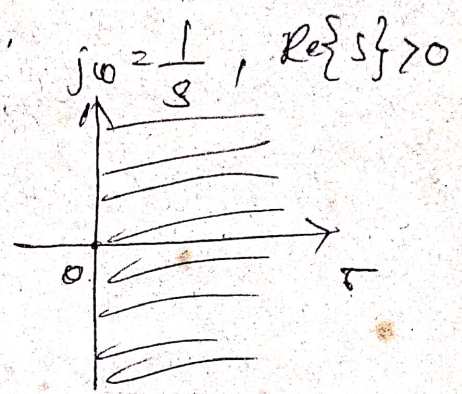 jω = 1/s , Re{s}>0
0
σ